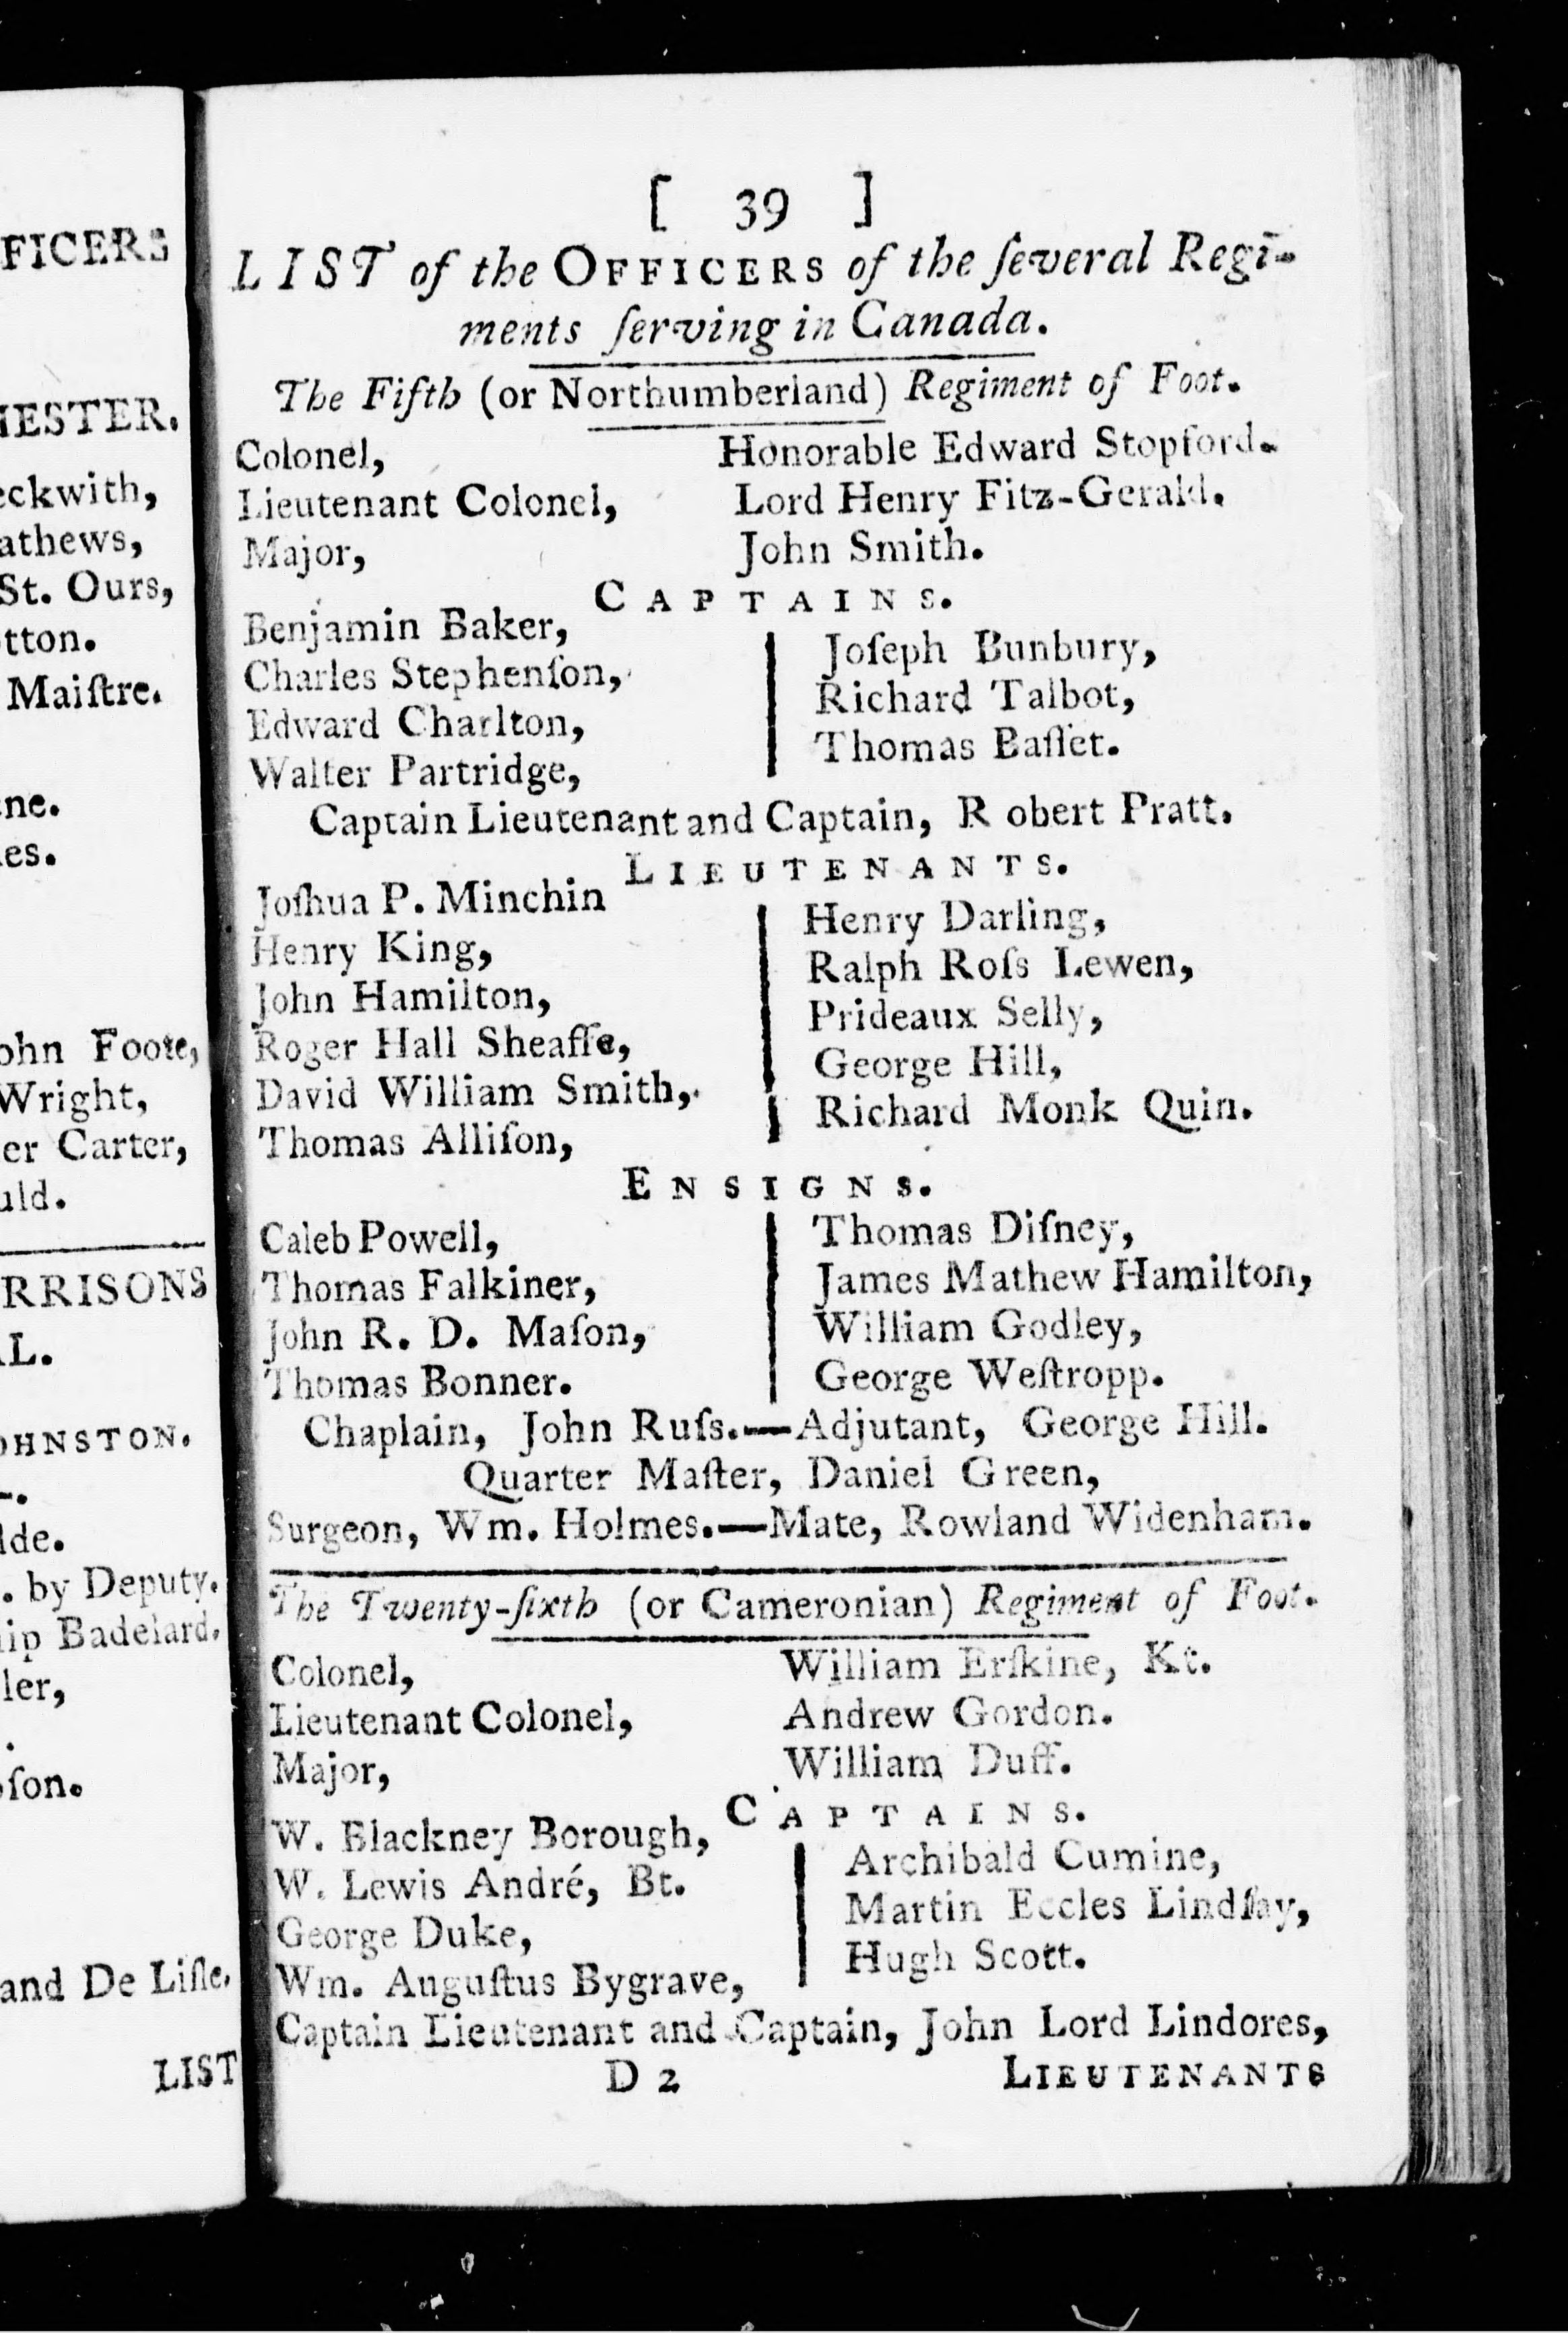 FICERS
HESTER.
eckwith,
athews,
St. Ours,
tton.
Maiſtre.
ne.
es.
ohn Foote,
Wright,
er Carter,
uld.
RRISONS
L.
OHNSTON.
lde.
. by Deputy.
lip Badelard.
ler,
ſon.
and De Liſle.
LIST
[ 39 ]
LIST of the OFFICERS of the ſeveral Regi-
ments ſerving in Canada.
The Fifth (or Northumberland) Regiment of Foot.
Colonel, Honorable Edward Stopford.
Lieutenant Colonel, Lord Henry Fitz-Gerald.
Major, John Smith.
CAPTAINS.
Benjamin Baker,
Charles Stephenſon,
Edward Charlton,
Walter Partridge,
Joſeph Bunbury,
Richard Talbot,
Thomas Baſſet.
Captain Lieutenant and Captain, R obert Pratt.
LIEUTENANTS.
Joſhua P. Minchin
Henry King,
John Hamilton,
Roger Hall Sheaffe,
David William Smith,
Thomas Alliſon,
Henry Darling,
Ralph Roſs Lewen,
Prideaux Selly,
George Hill,
Richard Monk Quin.
ENSIGNS.
Caleb Powell,
Thomas Falkiner,
John R. D. Maſon,
Thomas Bonner.
Thomas Diſney,
James Mathew Hamilton,
William Godley,
George Weſtropp.
Chaplain, John Ruſs.—Adjutant, George Hill.
Quarter Maſter, Daniel Green,
Surgeon, Wm. Holmes.—Mate, Rowland Widenham.
The Twenty-ſixth (or Cameronian) Regiment of Foot.
Colonel, William Erſkine, Kt.
Lieutenant Colonel, Andrew Gordon.
Major, William Duff.
CAPTAINS.
W. Blackney Borough,
W. Lewis André, Bt.
George Duke,
Wm. Auguſtus Bygrave,
Archibald Cumine,
Martin Eccles Lindſay,
Hugh Scott.
Captain Lieutenant and Captain, John Lord Lindores,
D 2 LIEUTENANTS